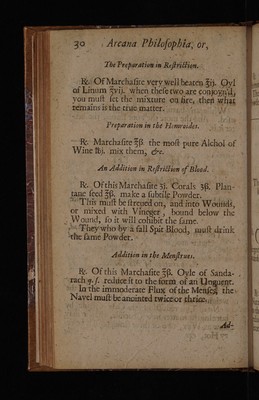 30 Arcana Philosophia, or,
The Preparation in Restriction.
℞. Of Marchasite very well beaten ℥ij. Oyl
of Linum ℥vij. when these two are conjoyn'd,
you must set the mixture on fire, then what
remains is the true matter.
Preparation in the Hemroides.
℞. Marchasite ℥ß the most pure Alchol of
Wine ℔j. mix them, &c.
An Addition in Restriction of Blood.
℞. Of this Marchasite ʒj. Corals ʒß. Plan-
tane seed ℥ß. make a subtile Powder.
This must be strewed on, and into Wounds,
or mixed with Vineger, bound below the
Wound, so it will cohibit the same.
They who by a fall Spit Blood, must drink
the same Powder.
Addition in the Menstrues.
℞. Of this Marchasite ℥ß. Oyle of Sanda-
rach q. s. reduce it to the form of an Unguent.
In the immoderate Flux of the Menses, the
Navel must be anointed twice or thrice.
Ad-